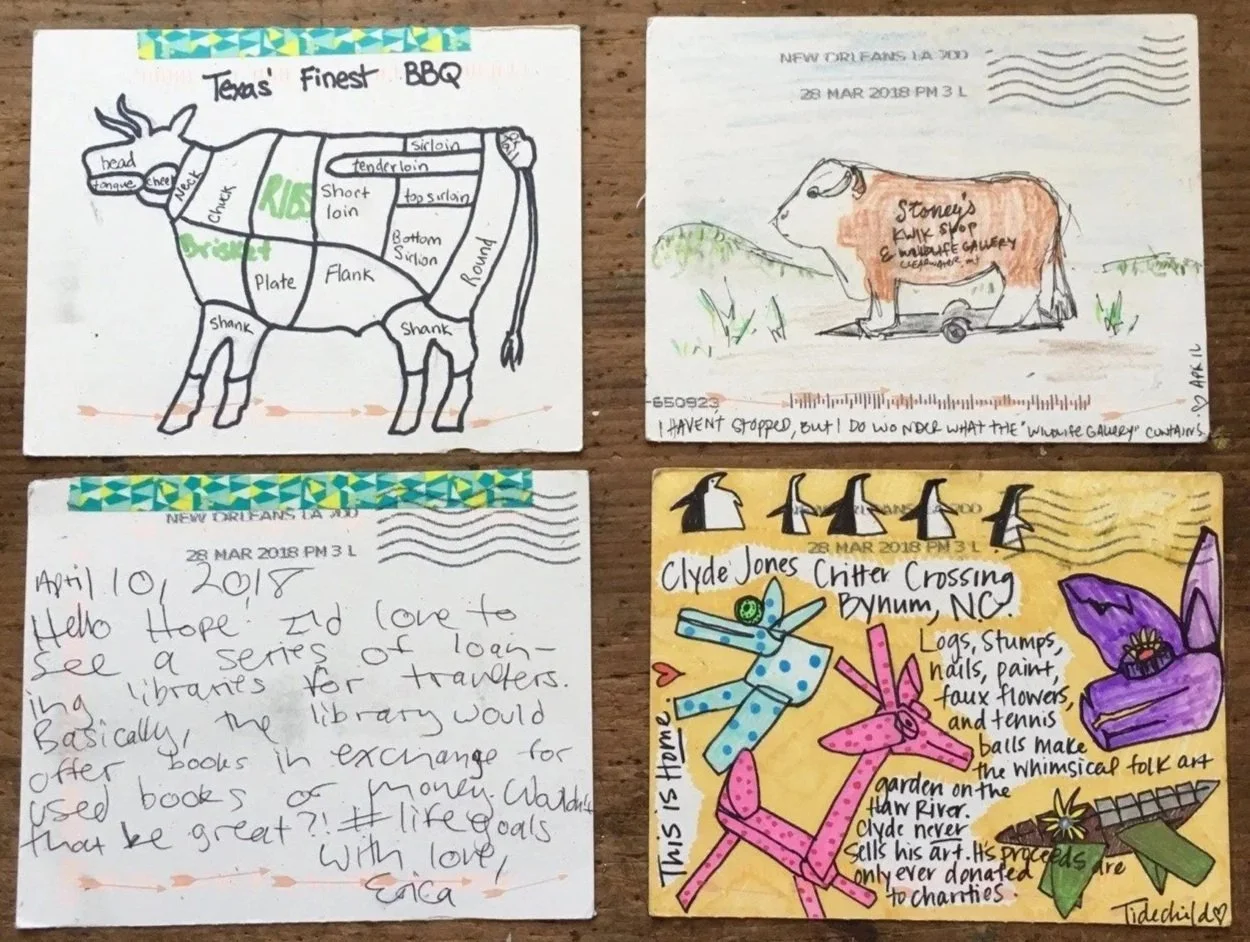 Texas' Finest BBQ
head
tongue
cheek
Neck
Chuck
RIBS
Short
loin
sirloin
tenderloin
top sirloin
Bottom
Sirloin
Round
Brisket
Plate
Flank
Shank
Shank
NEW ORLEANS LA 700
28 MAR 2018 PM 3 L
Stoney's
KWIK SHOP
& WILDLIFE GALLERY
CLEARWATER, MN
♡ APRIL
-650923
I HAVEN'T STOPPED, BUT I DO WONDER WHAT THE "WILDLIFE GALLERY" CONTAINS
NEW ORLEANS LA 700
28 MAR 2018 PM 3 L
April 10, 2018
Hello Hope. I'd love to
see a series of loan-
ing libraries for travelers.
Basically, the library would
offer books in exchange for
used books or money. Wouldn't
that be great?! #lifegoals
With love,
Erica
NEW ORLEANS LA 700
28 MAR 2018 PM 3 L
Clyde Jones Critter Crossing
Bynum, NC
Logs, Stumps,
nails, paint,
faux flowers,
and tennis
balls make
the whimsical folk art
garden on the
Haw River.
Clyde never
sells his art. His proceeds are
only ever donated
to charities
This is Home.
Tidechild♡